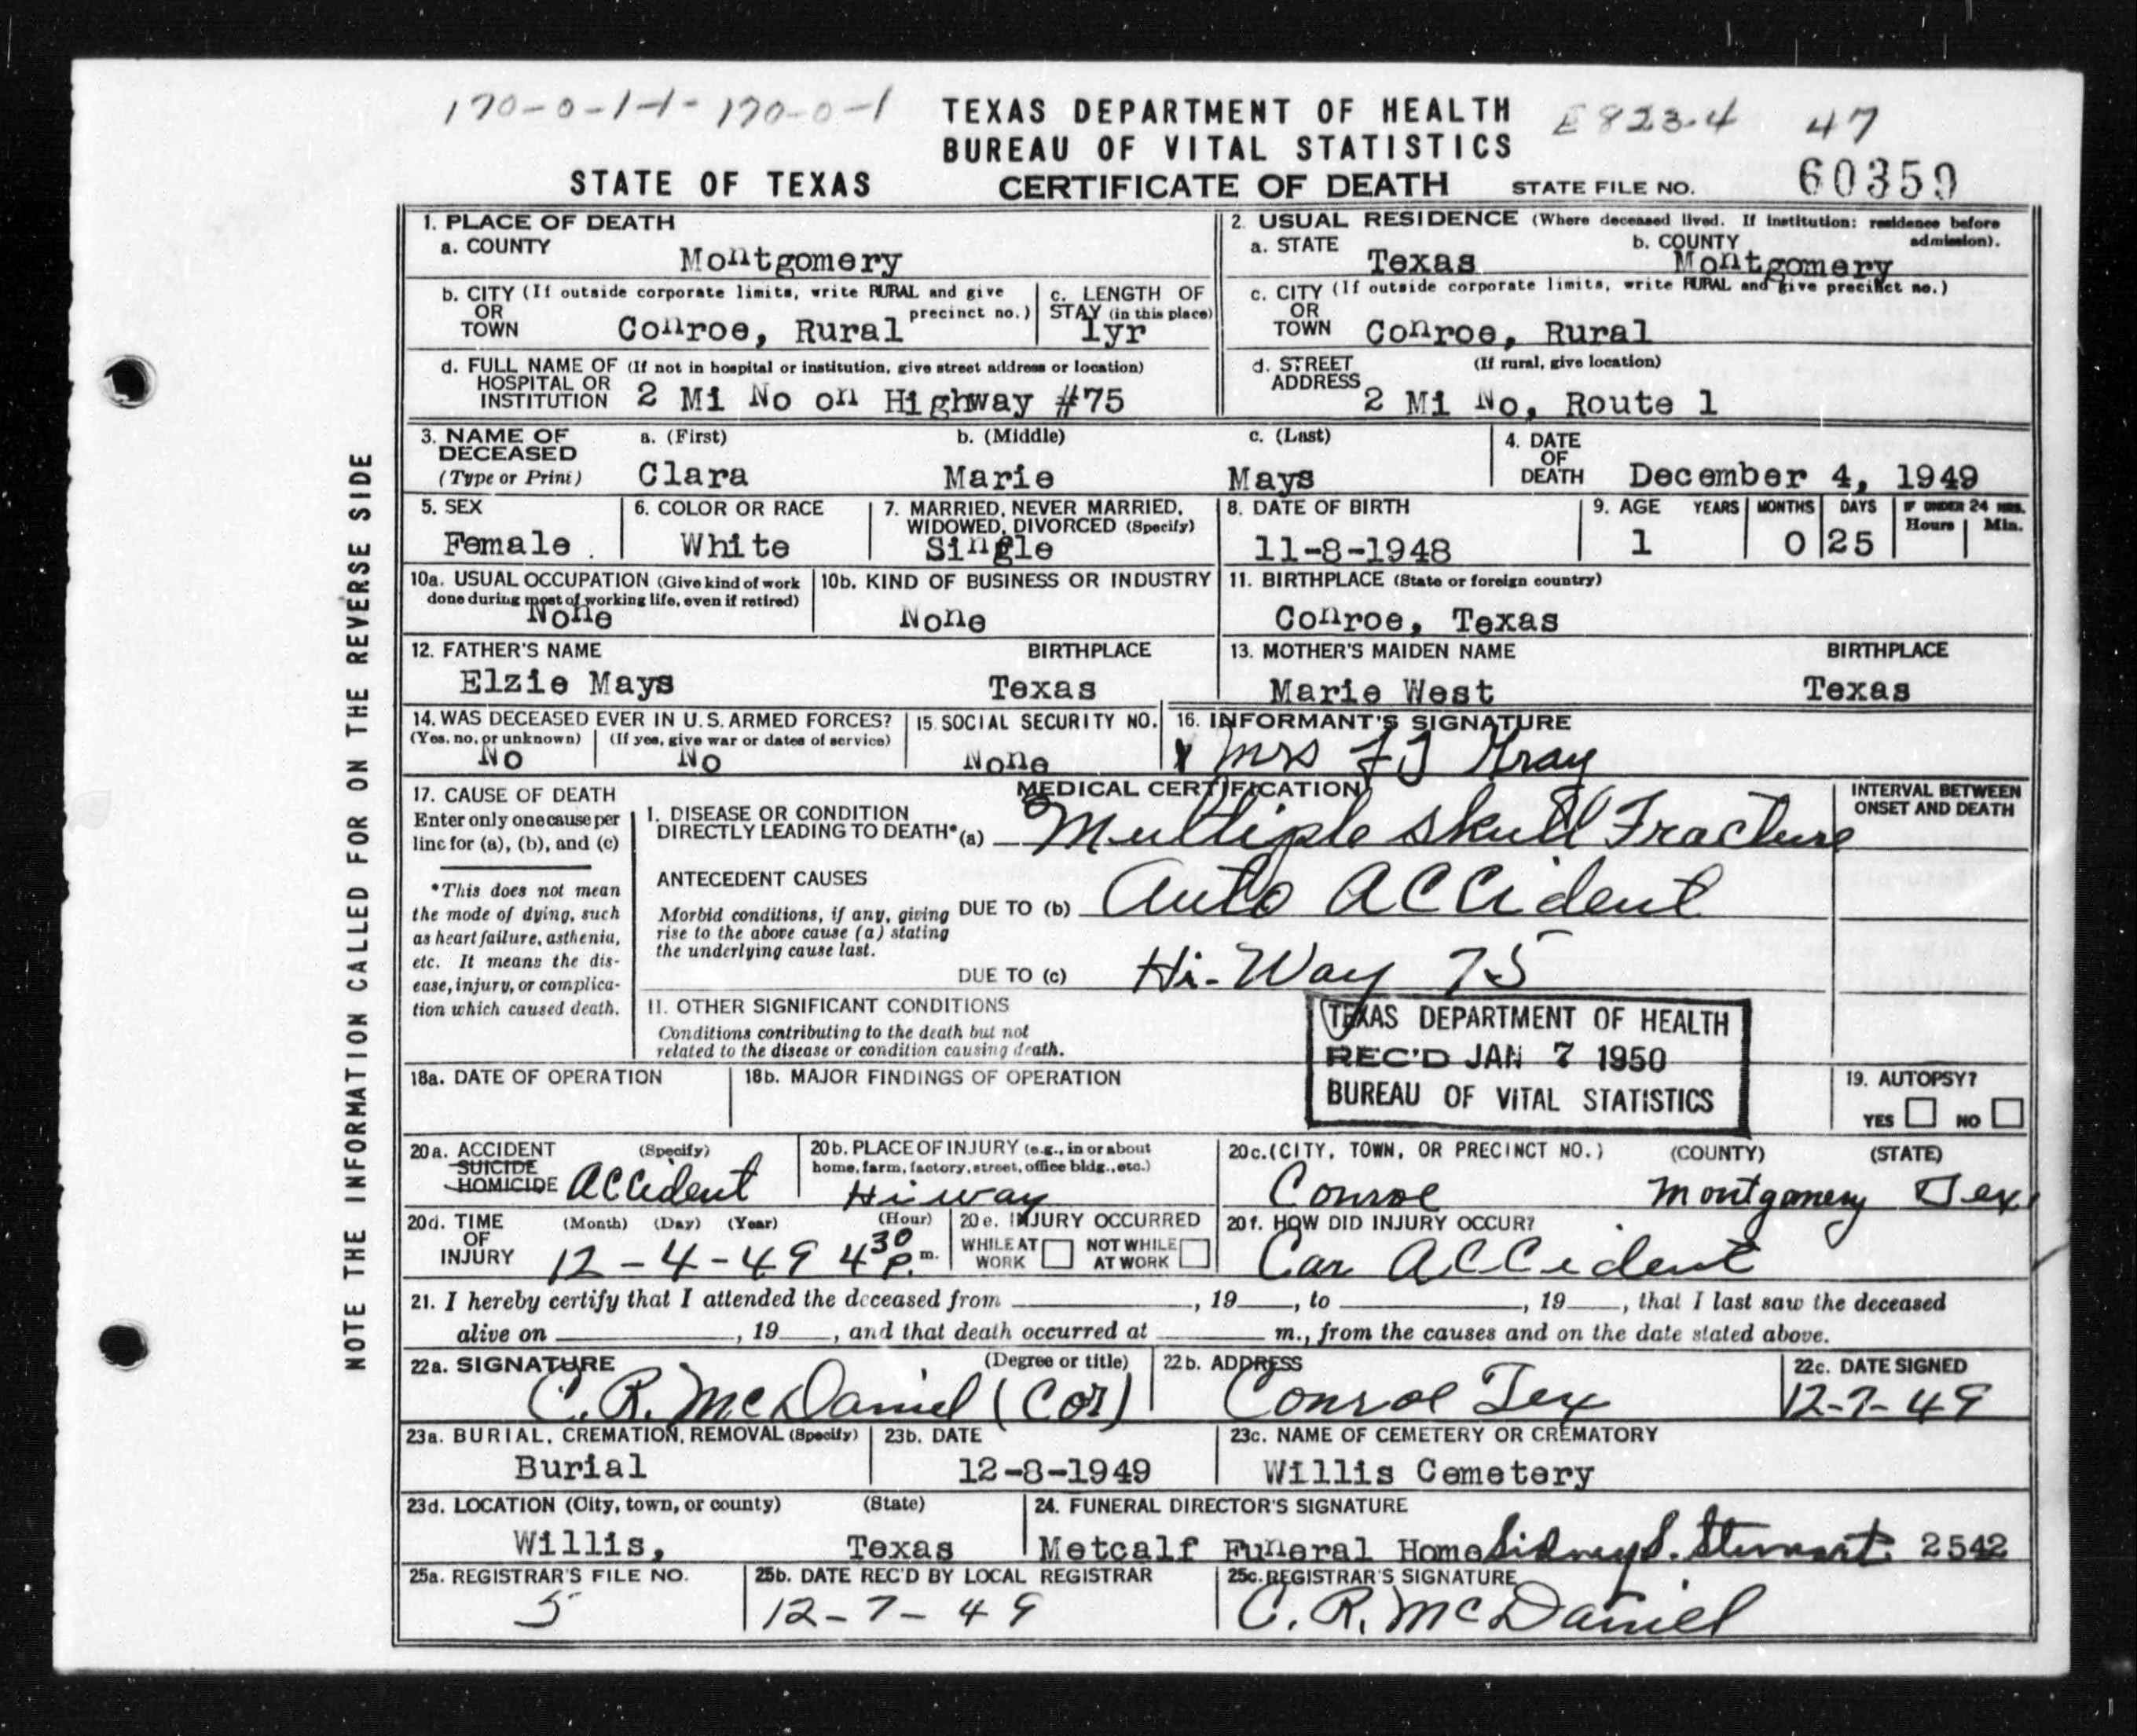 170-0-1-1- 170-0-1 TEXAS DEPARTMENT OF HEALTH E823.4 47
BUREAU OF VITAL STATISTICS
STATE OF TEXAS CERTIFICATE OF DEATH STATE FILE NO. 60359
NOTE THE INFORMATION CALLED FOR ON THE REVERSE SIDE
1. PLACE OF DEATH
a. COUNTY Montgomery
2. USUAL RESIDENCE (Where deceased lived. If institution: residence before admission).
a. STATE Texas b. COUNTY Montgomery
b. CITY (If outside corporate limits, write RURAL and give precinct no.)
OR TOWN Conroe, Rural
c. LENGTH OF STAY (in this place) 1yr
c. CITY (If outside corporate limits, write RURAL and give precinct no.)
OR TOWN Conroe, Rural
d. FULL NAME OF (If not in hospital or institution, give street address or location)
HOSPITAL OR INSTITUTION 2 Mi No on Highway #75
d. STREET ADDRESS (If rural, give location)
2 Mi No, Route 1
3. NAME OF DECEASED (Type or Print) a. (First) b. (Middle) c. (Last)
Clara Marie Mays
4. DATE OF DEATH December 4, 1949
5. SEX Female
6. COLOR OR RACE White
7. MARRIED, NEVER MARRIED, WIDOWED, DIVORCED (Specify) Single
8. DATE OF BIRTH 11-8-1948
9. AGE YEARS MONTHS DAYS IF UNDER 24 HRS. Hours Min.
1 0 25
10a. USUAL OCCUPATION (Give kind of work done during most of working life, even if retired) None
10b. KIND OF BUSINESS OR INDUSTRY None
11. BIRTHPLACE (State or foreign country) Conroe, Texas
12. FATHER'S NAME BIRTHPLACE
Elzie Mays Texas
13. MOTHER'S MAIDEN NAME BIRTHPLACE
Marie West Texas
14. WAS DECEASED EVER IN U.S. ARMED FORCES?
(Yes, no, or unknown) (If yes, give war or dates of service)
No No
15. SOCIAL SECURITY NO. None
16. INFORMANT'S SIGNATURE
x Mrs F J Gray
17. CAUSE OF DEATH
Enter only one cause per line for (a), (b), and (c)
*This does not mean the mode of dying, such as heart failure, asthenia, etc. It means the disease, injury, or complication which caused death.
MEDICAL CERTIFICATION
INTERVAL BETWEEN ONSET AND DEATH
I. DISEASE OR CONDITION DIRECTLY LEADING TO DEATH* (a) Multiple skull Fracture
ANTECEDENT CAUSES
Morbid conditions, if any, giving rise to the above cause (a) stating the underlying cause last.
DUE TO (b) Auto Accident
DUE TO (c) Hi-Way 75
II. OTHER SIGNIFICANT CONDITIONS
Conditions contributing to the death but not related to the disease or condition causing death.
TEXAS DEPARTMENT OF HEALTH
REC'D JAN 7 1950
BUREAU OF VITAL STATISTICS
18a. DATE OF OPERATION
18b. MAJOR FINDINGS OF OPERATION
19. AUTOPSY?
YES NO
20a. ACCIDENT SUICIDE HOMICIDE (Specify) Accident
20b. PLACE OF INJURY (e.g., in or about home, farm, factory, street, office bldg., etc.) Hi-way
20c. (CITY, TOWN, OR PRECINCT NO.) (COUNTY) (STATE)
Conroe Montgomery Tex
20d. TIME OF INJURY (Month) (Day) (Year) (Hour)
12-4-49 4 30 P. m.
20e. INJURY OCCURRED
WHILE AT WORK NOT WHILE AT WORK
20f. HOW DID INJURY OCCUR?
Car Accident
21. I hereby certify that I attended the deceased from , 19 , to , 19 , that I last saw the deceased
alive on , 19 , and that death occurred at m., from the causes and on the date stated above.
22a. SIGNATURE (Degree or title)
C. R. McDaniel (Cor)
22b. ADDRESS Conroe Tex
22c. DATE SIGNED 12-7-49
23a. BURIAL, CREMATION, REMOVAL (Specify) Burial
23b. DATE 12-8-1949
23c. NAME OF CEMETERY OR CREMATORY Willis Cemetery
23d. LOCATION (City, town, or county) (State)
Willis, Texas
24. FUNERAL DIRECTOR'S SIGNATURE
Metcalf Funeral Home Sidney S. Stewart 2542
25a. REGISTRAR'S FILE NO. 5
25b. DATE REC'D BY LOCAL REGISTRAR 12-7-49
25c. REGISTRAR'S SIGNATURE
C. R. McDaniel